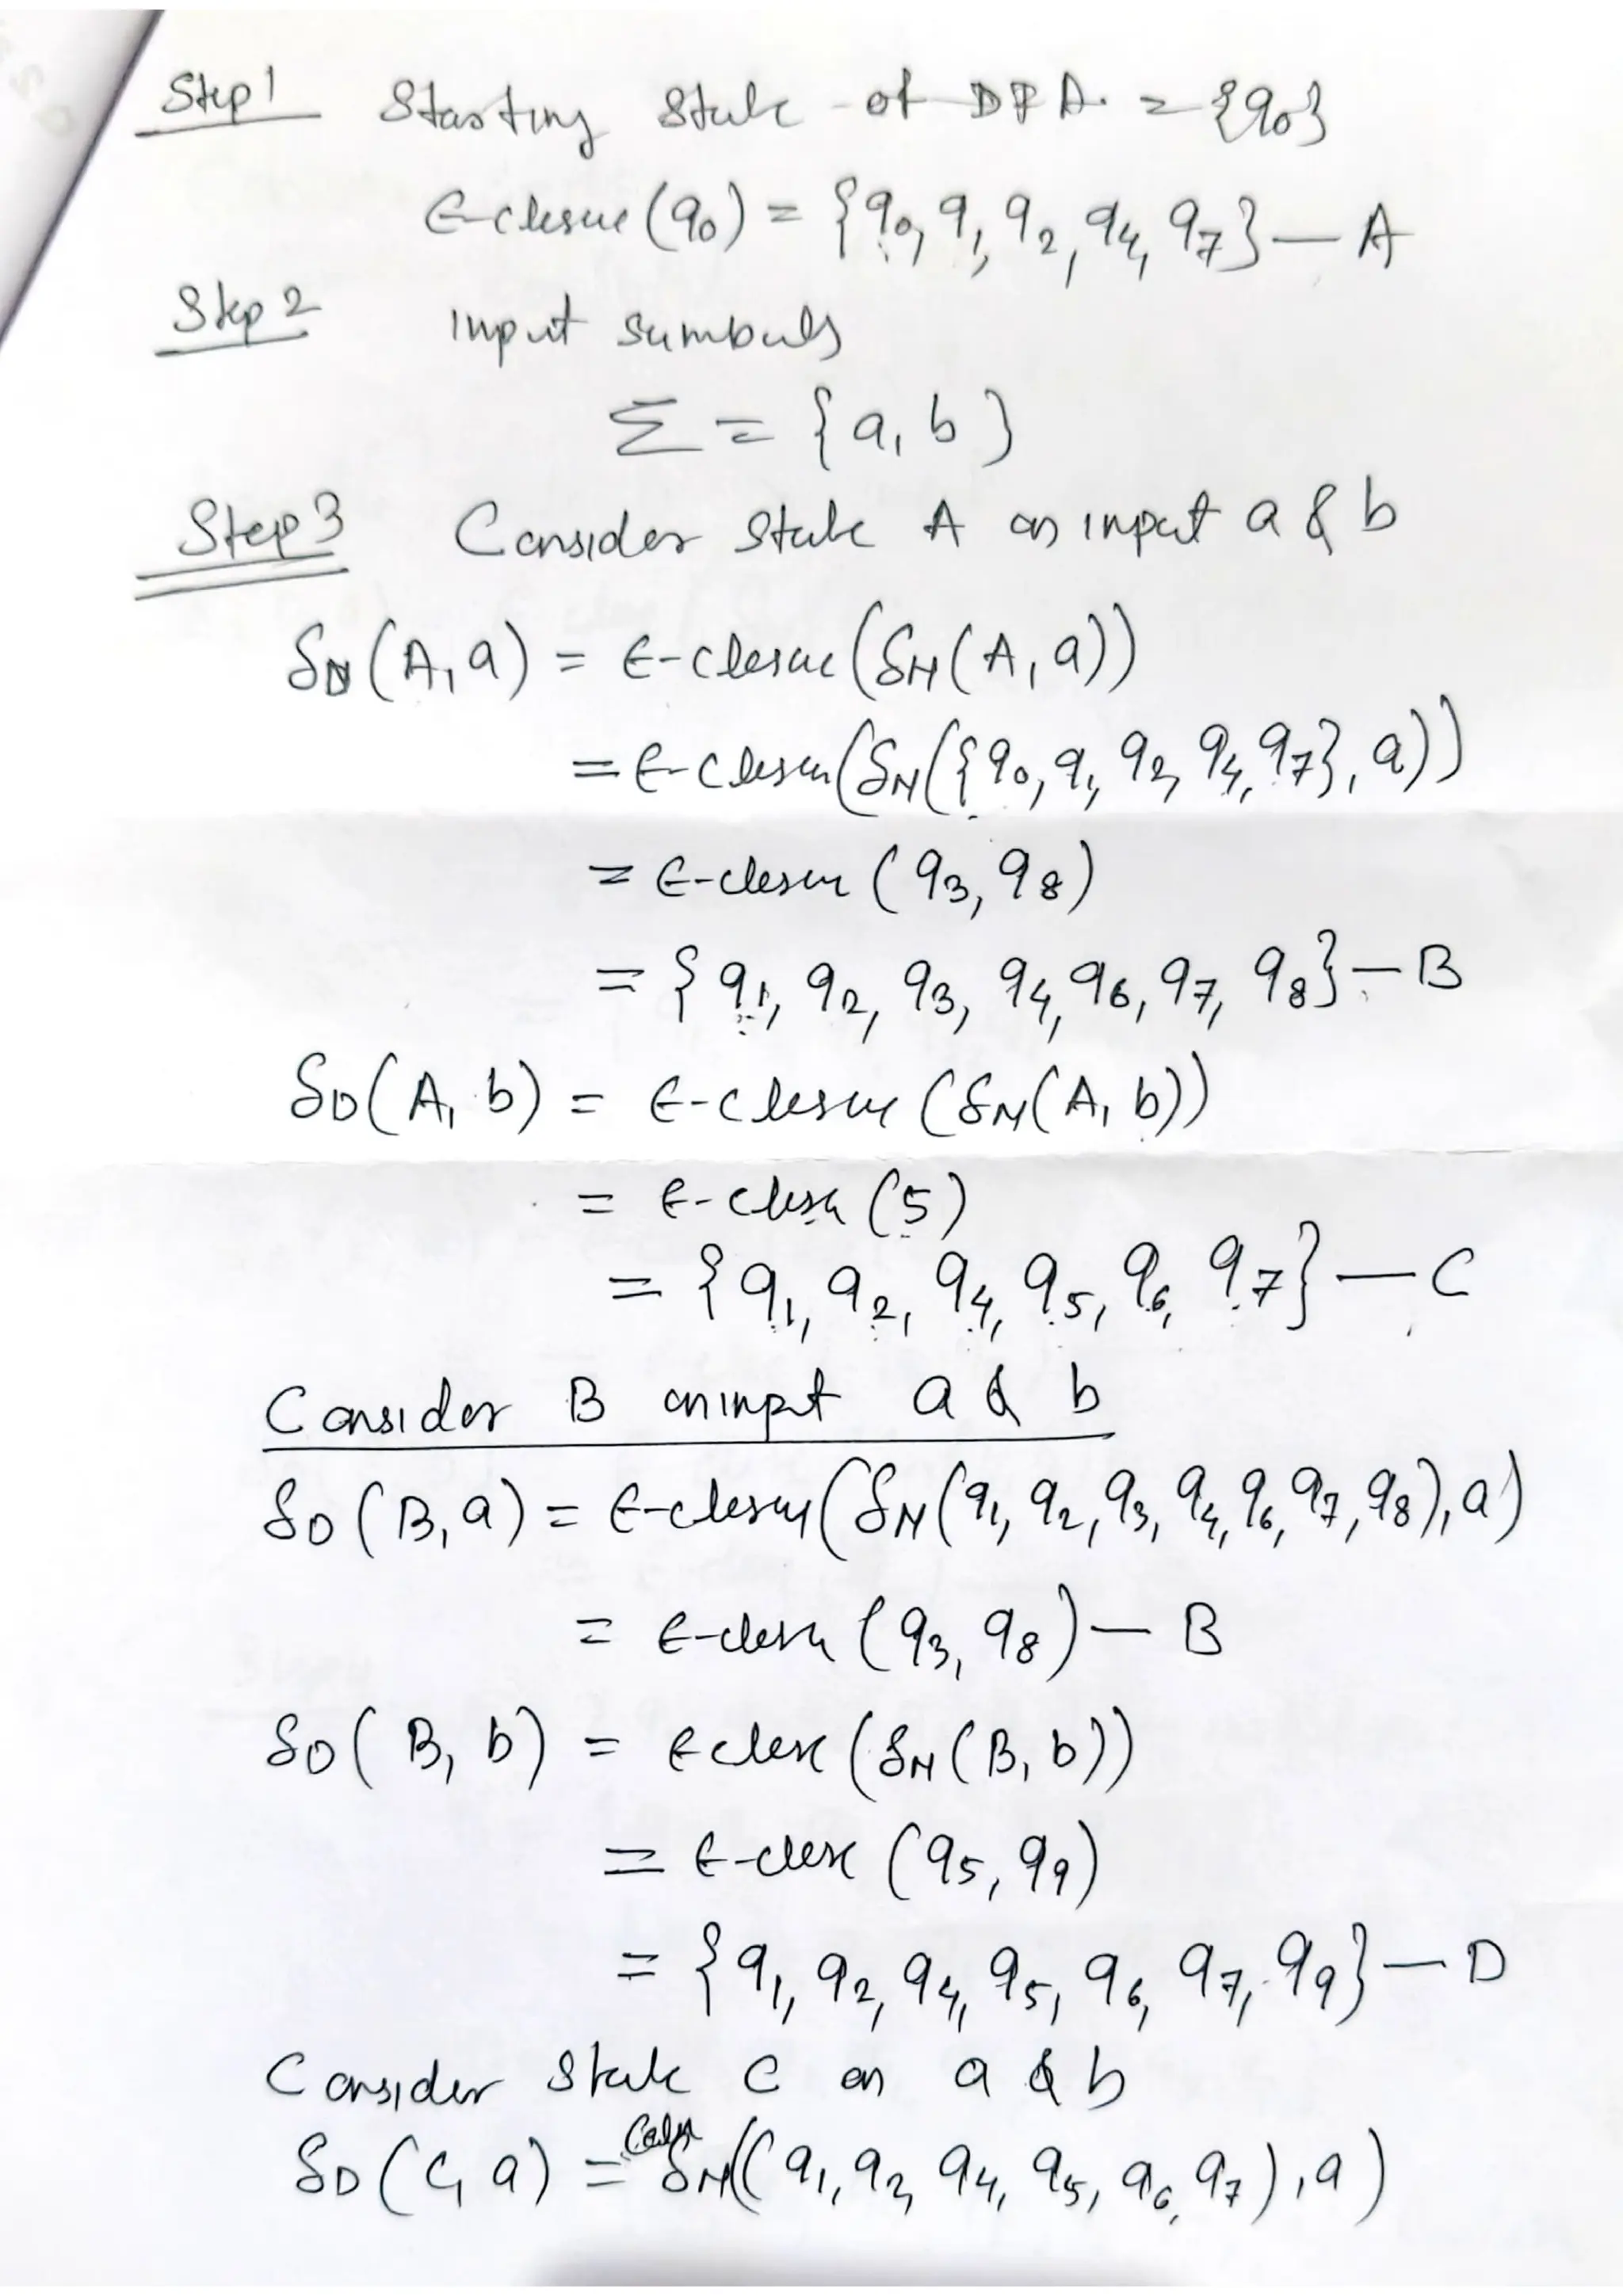 Step 1 Starting State of DFA. = {q0}
ϵ-closure (q0) = {q0, q1, q2, q4, q7} — A
Step 2 Input Sumbuls
Σ = {a, b}
Step 3 Consider State A on input a & b
δD (A, a) = ϵ-closure (δN (A, a))
= ϵ-closure (δN ({q0, q1, q2, q4, q7}, a))
= ϵ-closure (q3, q8)
= {q1, q2, q3, q4, q6, q7, q8} — B
δD (A, b) = ϵ-closure (δN (A, b))
= ϵ-closure (5)
= {q1, q2, q4, q5, q6, q7} — C
Consider B on input a & b
δD (B, a) = ϵ-closure (δN (q1, q2, q3, q4, q6, q7, q8), a)
= ϵ-closure (q3, q8) — B
δD (B, b) = ϵ-closure (δN (B, b))
= ϵ-closure (q5, q9)
= {q1, q2, q4, q5, q6, q7, q9} — D
Consider State C on a & b
δD (C, a) = δN ((q1, q2, q4, q5, q6, q7), a)